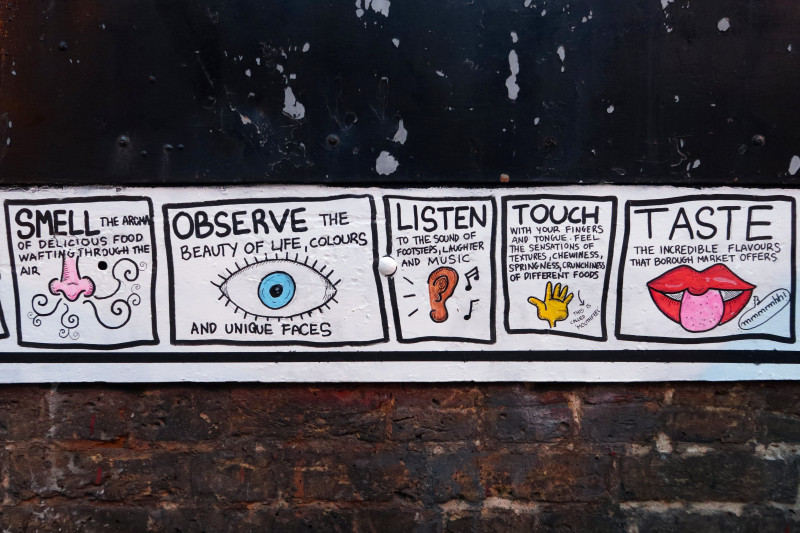 SMELL THE AROMA
OF DELICIOUS FOOD
WAFTING THROUGH THE
AIR
OBSERVE THE
BEAUTY OF LIFE, COLOURS
AND UNIQUE FACES
LISTEN
TO THE SOUND OF
FOOTSTEPS, LAUGHTER
AND MUSIC
TOUCH
WITH YOUR FINGERS
AND TONGUE. FEEL
THE SENSATIONS OF
TEXTURES, CHEWINESS,
SPRINGNESS, CRUNCHINESS
OF DIFFERENT FOODS
THIS IS
CALLED
MOUTHFEEL
TASTE
THE INCREDIBLE FLAVOURS
THAT BOROUGH MARKET OFFERS
mmmmmhhi